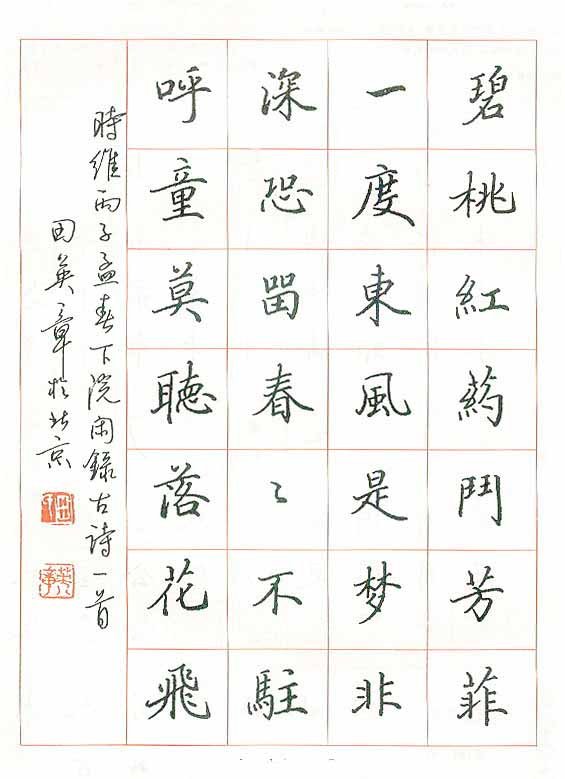 碧桃紅药鬥芳菲
一度東風是梦非
深恐留春〻不駐
呼童莫聽落花飛
時維丙子孟春下浣閑錄古詩一首
田英章於北京
田
英章